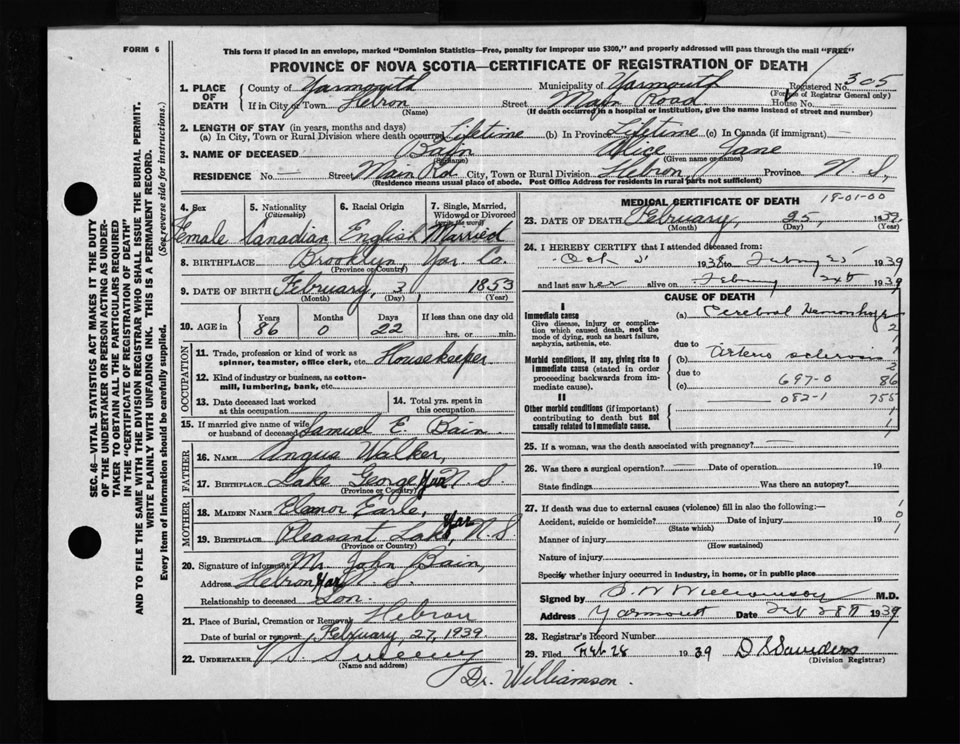 FORM 6
This form if placed in an envelope, marked "Dominion Statistics—Free, penalty for improper use $300," and properly addressed will pass through the mail "FREE"
PROVINCE OF NOVA SCOTIA—CERTIFICATE OF REGISTRATION OF DEATH
1. PLACE OF DEATH County of Yarmouth Municipality of Yarmouth Registered No. 305
(For use of Registrar General only)
If in City or Town Hebron Street Main Road House No. —
(Name) (If death occurred in a hospital or institution, give the name instead of street and number)
2. LENGTH OF STAY (in years, months and days)
(a) In City, Town or Rural Division where death occurred Lifetime (b) In Province Lifetime (c) In Canada (if immigrant) —
3. NAME OF DECEASED Bain Alice Jane
(Surname) (Given name or names)
RESIDENCE No. — Street Main Rd City, Town or Rural Division Hebron, Province N. S.,
(Residence means usual place of abode. Post Office Address for residents in rural parts not sufficient)
4. Sex 5. Nationality (Citizenship) 6. Racial Origin 7. Single, Married, Widowed or Divorced (write the word)
Female Canadian English Married
8. BIRTHPLACE Brooklyn, Yar. Co.
(Province or Country)
9. DATE OF BIRTH February, 3 1853
(Month) (Day) (Year)
10. AGE in Years 86 Months 0 Days 22 If less than one day old
hrs. or min.
OCCUPATION
11. Trade, profession or kind of work as spinner, teamster, office clerk, etc. Housekeeper
12. Kind of industry or business, as cotton-mill, lumbering, bank, etc.
13. Date deceased last worked at this occupation
14. Total yrs. spent in this occupation
15. If married give name of wife or husband of deceased Samuel E. Bain
FATHER
16. NAME Angus Walker,
17. BIRTHPLACE Lake George Yar N. S.
(Province or Country)
MOTHER
18. MAIDEN NAME Elenor Earle,
19. BIRTHPLACE Pleasant Lake, Yar N. S.
(Province or Country)
20. Signature of informant Mr. John Bain,
Address Hebron Yar N. S.
Relationship to deceased Son.
21. Place of Burial, Cremation or Removal Hebron
Date of burial or removal February, 27, 1939
22. UNDERTAKER V. S. Sweeny
(Name and address)
Dr. Williamson.
MEDICAL CERTIFICATE OF DEATH
18-01-00
23. DATE OF DEATH February, 25, 1939
(Month) (Day) (Year)
24. I HEREBY CERTIFY that I attended deceased from:
Oct 1938 to 1939
and last saw her alive on February 1939
CAUSE OF DEATH
I
Immediate cause
Give disease, injury or complication which caused death, not the mode of dying, such as heart failure, asphyxia, asthenia, etc.
(a) Cerebral Hemorhage
2
1
1
Morbid conditions, if any, giving rise to immediate cause (stated in order proceeding backwards from immediate cause)
due to
(b) Arterio sclerosis
2
due to
(c) 697-0 86
082-1 755
II
Other morbid conditions (if important) contributing to death but not causally related to Immediate cause.
1
1
1
25. If a woman, was the death associated with pregnancy? —
26. Was there a surgical operation? — Date of operation 19
State findings Was there an autopsy?
27. If death was due to external causes (violence) fill in also the following:—
Accident, suicide or homicide? Date of injury 19
(State which)
Manner of injury
(How sustained)
Nature of injury
1
0
1
Specify whether injury occurred in industry, in home, or in public place
Signed by Williamson M.D.
Address Yarmouth Date Feb 28th 1939
28. Registrar's Record Number
29. Filed Feb 28 1939 D S Saunders
(Division Registrar)
SEC. 46—VITAL STATISTICS ACT MAKES IT THE DUTY
OF THE UNDERTAKER OR PERSON ACTING AS UNDERTAKER TO OBTAIN ALL THE PARTICULARS REQUIRED
IN THE "CERTIFICATE OF REGISTRATION OF DEATH"
AND TO FILE THE SAME WITH THE DIVISION REGISTRAR WHO SHALL ISSUE THE BURIAL PERMIT.
WRITE PLAINLY WITH UNFADING INK. THIS IS A PERMANENT RECORD.
Every item of information should be carefully supplied. (See reverse side for instructions.)